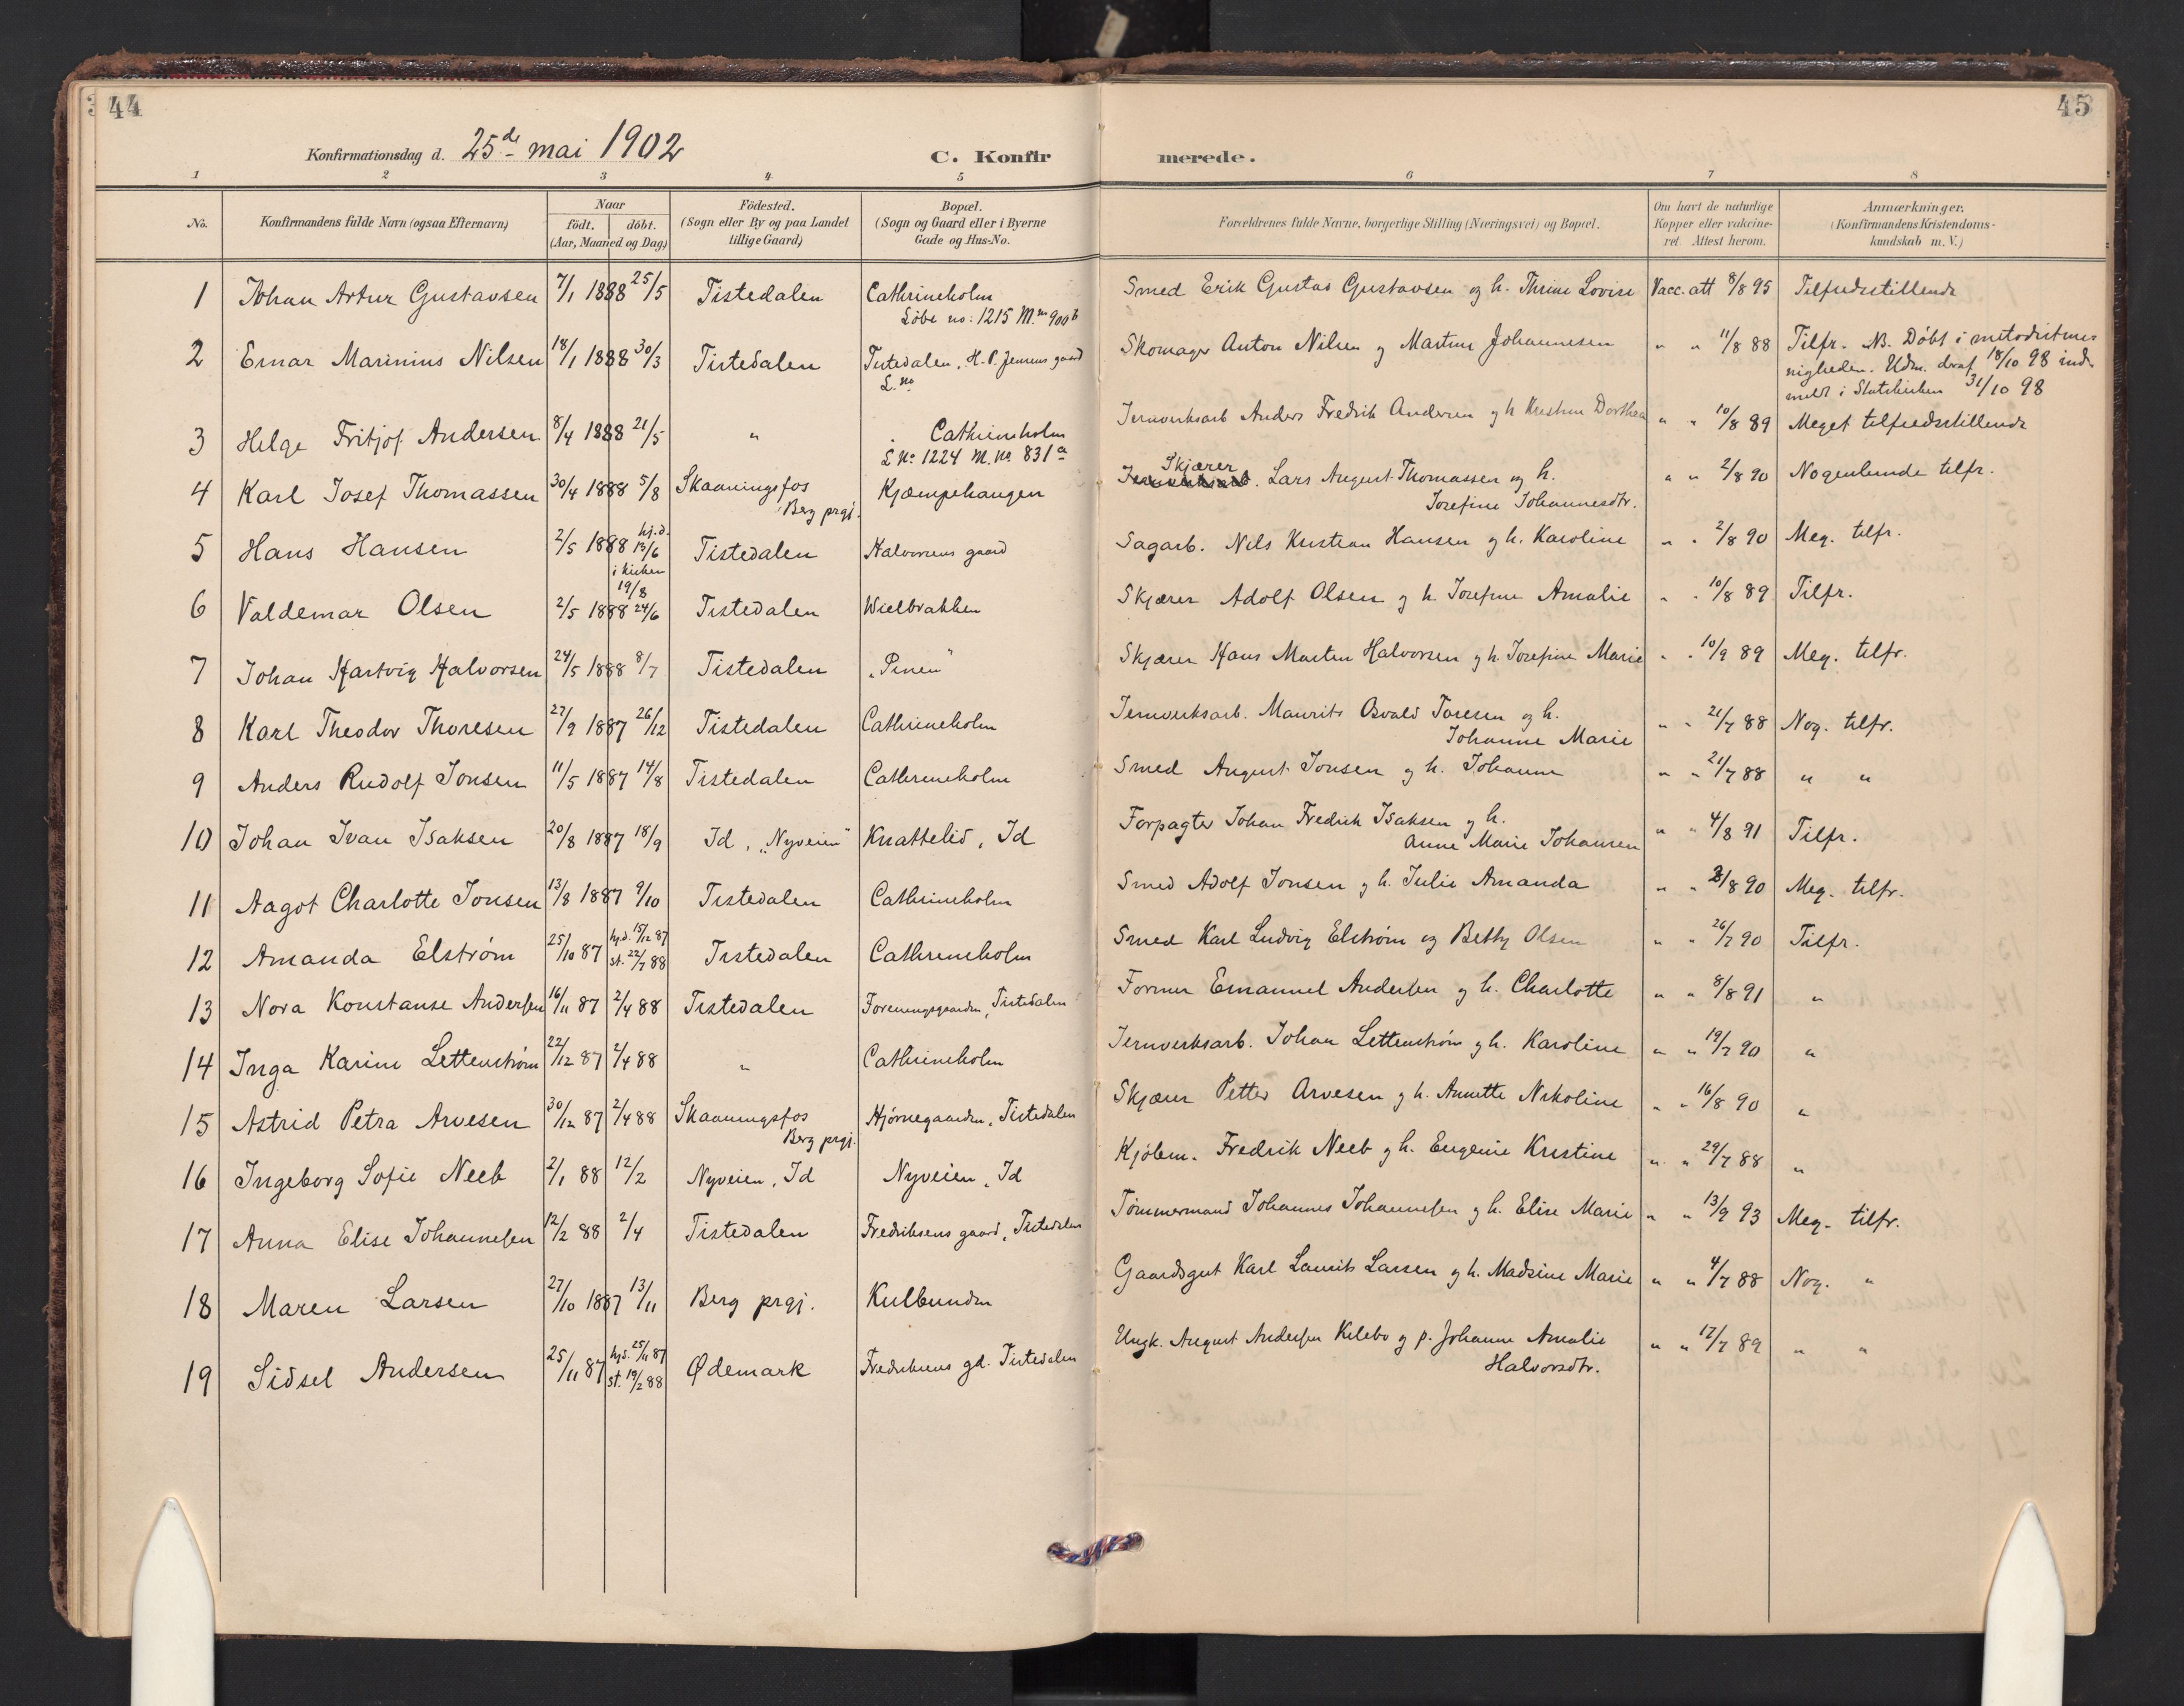 44
45
Konfirmationsdag d. 25de mai 1902
C. Konfirmerede.
1 2 3 4 5 6 7 8
No.
Konfirmandens fulde Navn (ogsaa Efternavn)
Naar
födt. döbt.
(Aar, Maaned og Dag)
Födested.
(Sogn eller By og paa Landet
tillige Gaard)
Bopæl.
(Sogn og Gaard eller i Byerne
Gade og Hus-No.
Forældrenes fulde Navne, borgerlige Stilling (Næringsvei) og Bopæl.
Om havt de naturlige
Kopper eller vakcine-
ret. Attest herom.
Anmærkninger.
(Konfirmandens Kristendoms-
kundskab m. V.)
1 Johan Artur Gustavsen 7/1 1888 25/5 Tistedalen Cathrineholm Smed Erik Gustav Gustavsen og h. Thrine Lovise Vacc. att 8/8 95 Tilfredsstillende
Löbe no: 1215 M.no 900b
2 Einar Marinius Nilsen 18/1 1888 30/3 Tistedalen Tistedalen, H. P. Jensens gaard Skomager Anton Nilsen og Martine Johannesen " " 11/8 88 Tilfr. NB. Döbt i metodistme-
L. no
nigheden. Udm. deraf 18/10 98 ind-
meldt i Statskirken 31/10 98
3 Helge Fritjof Andersen 8/4 1888 21/5 " Cathrineholm Jernverksarb Anders Fredrik Andersen og h Kristine Dorthea " " 10/8 89 Meget tilfredsstillende
L No 1224 M. No 831a
4 Karl Josef Thomassen 30/4 1888 5/8 Skaaningsfos Kjæmpehaugen Skjærer Lars August Thomassen og h. " " 2/8 90 Nogenlunde tilfr.
Berg prgj. Josefine Johannesdtr.
5 Hans Hansen 2/5 1888 hj.d. 13/6 Tistedalen Halvorsens gaard Sagarb. Nils Kristian Hansen og h. Karoline " " 2/8 90 Meg. tilfr.
i kirken
19/8
6 Valdemar Olsen 2/5 1888 24/6 Tistedalen Wielbrakken Skjærer Adolf Olsen og h. Josefine Amalie " " 10/8 89 Tilfr.
7 Johan Hartvig Halvorsen 24/5 1888 8/7 Tistedalen "Pinen" Skjærer Hans Martin Halvorsen og h. Josefine Marie " " 10/9 89 Meg. tilfr.
8 Karl Theodor Thoresen 27/9 1887 26/12 Tistedalen Cathrineholm Jernverksarb. Maurits Osvald Toresen og h. " " 21/7 88 Nog. tilfr.
Johanne Marie
9 Anders Rudolf Jonsen 11/5 1887 14/8 Tistedalen Cathrineholm Smed August Jonsen og h. Johanne " " 21/7 88 " "
10 Johan Ivan Isaksen 20/8 1887 18/9 Id, "Nyveien" Knattelid, Id Forpagter Johan Fredrik Isaksen og h. " " 4/8 91 Tilfr.
Anne Marie Johansen
11 Aagot Charlotte Jonsen 13/8 1887 9/10 Tistedalen Cathrineholm Smed Adolf Jonsen og h. Julie Amanda " " 2/8 90 Meg. tilfr.
12 Amanda Elström 25/10 87 hj.d. 15/12 87 Tistedalen Cathrineholm Smed Karl Ludvig Elström og Betty Olsen " " 26/7 90 Tilfr.
st. 22/7 88
13 Nora Konstanse Andersen 16/11 87 2/4 88 Tistedalen Foreningsgaarden, Tistedalen Former Emanuel Andersen og h. Charlotte " " 8/8 91 "
14 Inga Karine Lettenström 22/12 87 2/4 88 " Cathrineholm Jernverksarb. Johan Lettenström og h. Karoline " " 19/7 90 "
15 Astrid Petra Arvesen 30/12 87 2/4 88 Skaaningsfos Hjörnegaarden, Tistedalen Skjærer Petter Arvesen og h. Annette Nikoline " " 16/8 90 "
Berg prgj.
16 Ingeborg Sofie Neeb 2/1 88 12/2 Nyveien, Id Nyveien, Id Kjöbm. Fredrik Neeb og h. Eugenie Kristine " " 29/7 88 "
17 Anna Elise Johannesen 12/2 88 2/4 Tistedalen Fredriksens gaard, Tistedalen Tömmermand Johannes Johannesen og h. Elise Marie " " 13/9 93 Meg. tilfr.
18 Maren Larsen 27/10 1887 13/11 Berg prgj. Kulbunden Gaardsgut Karl Laurits Larsen og h. Madsine Marie " " 4/7 88 Nog. "
19 Sidsel Andersen 25/11 87 hj.d. 25/11 87 Ødemark Fredriksens gd. Tistedalen Ungk. August Andersen Kilebo og p. Johanne Amalie " " 17/7 89 " "
st. 19/2 88 Halvorsdtr.